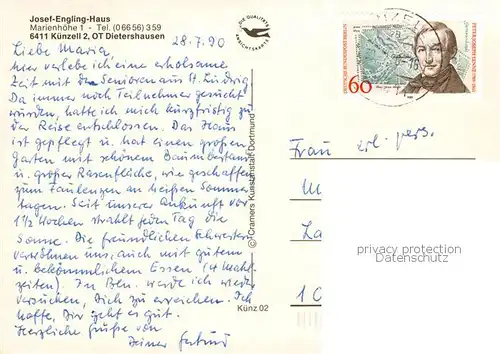 Josef-Engling-Haus
Marienhöhe 1 - Tel. (0 66 56) 3 59
6411 Künzell 2, OT Dietershausen
28.7.90
Liebe Maria,
hier verlebe ich eine erholsame
Zeit mit den Senioren aus St. Ludwig.
Da immer noch Teilnehmer gesucht
wurden, hatte ich mich kurzfristig zu
der Reise entschlossen. Das Haus
ist gepflegt u. hat einen großen
Garten mit schönem Baumbestand
u. großer Rasenfläche, wie geschaffen
zum Faulenzen an heißen Sommer-
tagen. Seit unserer Ankunft vor
1 1/2 Wochen strahlt jeden Tag die
Sonne. Die freundlichen Schwestern
verwöhnen uns, auch mit gutem
u. bekömmlichem Essen (4 Mahl-
zeiten). In Bln. werde ich wieder
versuchen, Dich zu erreichen. Ich
hoffe, Dir geht es gut.
Herzliche Grüße von
Deiner Gertrud
Künz 02
© Cramers Kunstanstalt Dortmund
DIE QUALITÄTS
ANSICHTSKARTE
DEUTSCHE BUNDESPOST BERLIN
60
PETER JOSEPH LENNÉ 1789-1866
Frau
pers.
M
La
1 0
privacy protection
Datenschutz